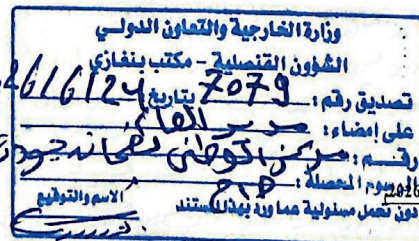 وزارة الخارجية والتعاون الدولي
الشؤون القنصلية - مكتب بنغازي
تصديق رقم: 7079 بتاريخ 26/6/24
على إمضاء: مدير العام
وختم: مركز الوطني لضمان جودة
الرسوم المحصلة:
2026
دون تحمل مسئولية عما ورد بهذا المستند
الاسم والتوقيع